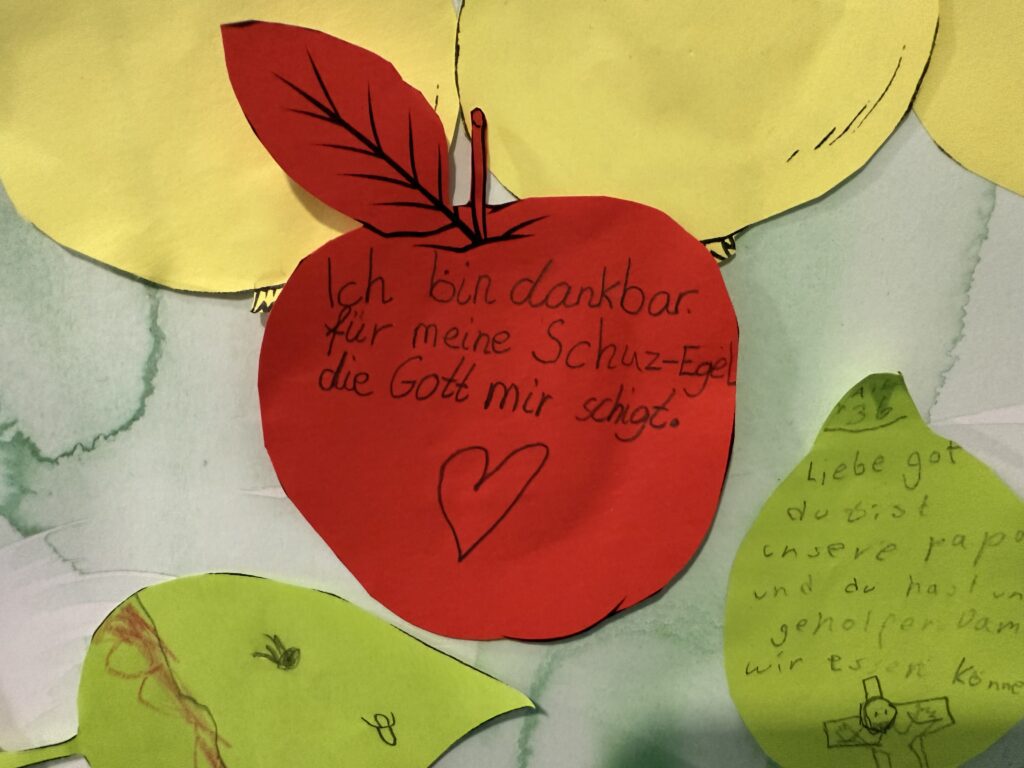 Ich bin dankbar.
für meine Schuz-Egel
die Gott mir schigt.
Liebe got
du bist
unsere papa
und du hast un
geholfen Dam
wir essen könne